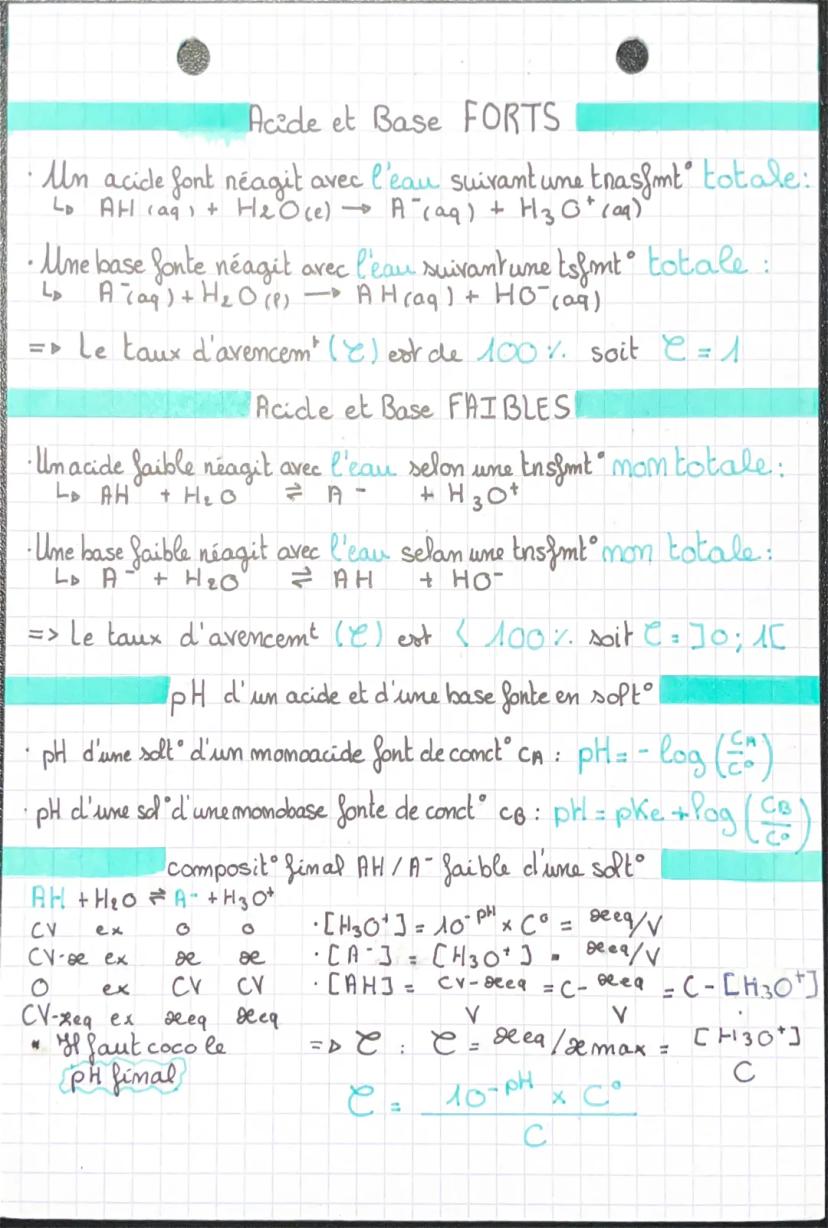 Acide et Base FORTS
· Un acide fort réagit avec l'eau suivant une trasfmt° totale :
↳ AH (aq) + H₂O(l) → A⁻(aq) + H₃O⁺(aq)
· Une base forte réagit avec l'eau suivant une tsfmt° totale :
↳ A⁻(aq) + H₂O(l) → AH(aq) + HO⁻(aq)
=> Le taux d'avencemᵗ (τ) est de 100 % soit τ = 1
Acide et Base FAIBLES
· Un acide faible réagit avec l'eau selon une trsfmt° non totale :
↳ AH + H₂O ⇌ A⁻ + H₃O⁺
· Une base faible réagit avec l'eau selon une trsfmt° non totale :
↳ A⁻ + H₂O ⇌ AH + HO⁻
=> Le taux d'avencemᵗ (τ) est < 100 % soit τ = ]0 ; 1[
pH d'un acide et d'une base forte en solt°
· pH d'une solt° d'un monoacide fort de conct° CA : pH = - log (CA/C°)
· pH d'une sol° d'une monobase forte de conct° CB : pH = pKe + log (CB/C°)
composit° final AH / A⁻ faible d'une solt°
AH + H₂O ⇌ A⁻ + H₃O⁺
CV ex 0 0 · [H₃O⁺] = 10⁻ᵖᴴ × C° = xeq/V
CV-x ex x x · [A⁻] = [H₃O⁺] = xeq/V
0 ex CV CV · [AH] = CV-xeq/V = C - xeq/V = C - [H₃O⁺]
CV-xeq ex xeq xeq
* Il faut coco le => τ : τ = xeq/xmax = [H₃O⁺]/C
pH final
τ = 10⁻ᵖᴴ × C°/C